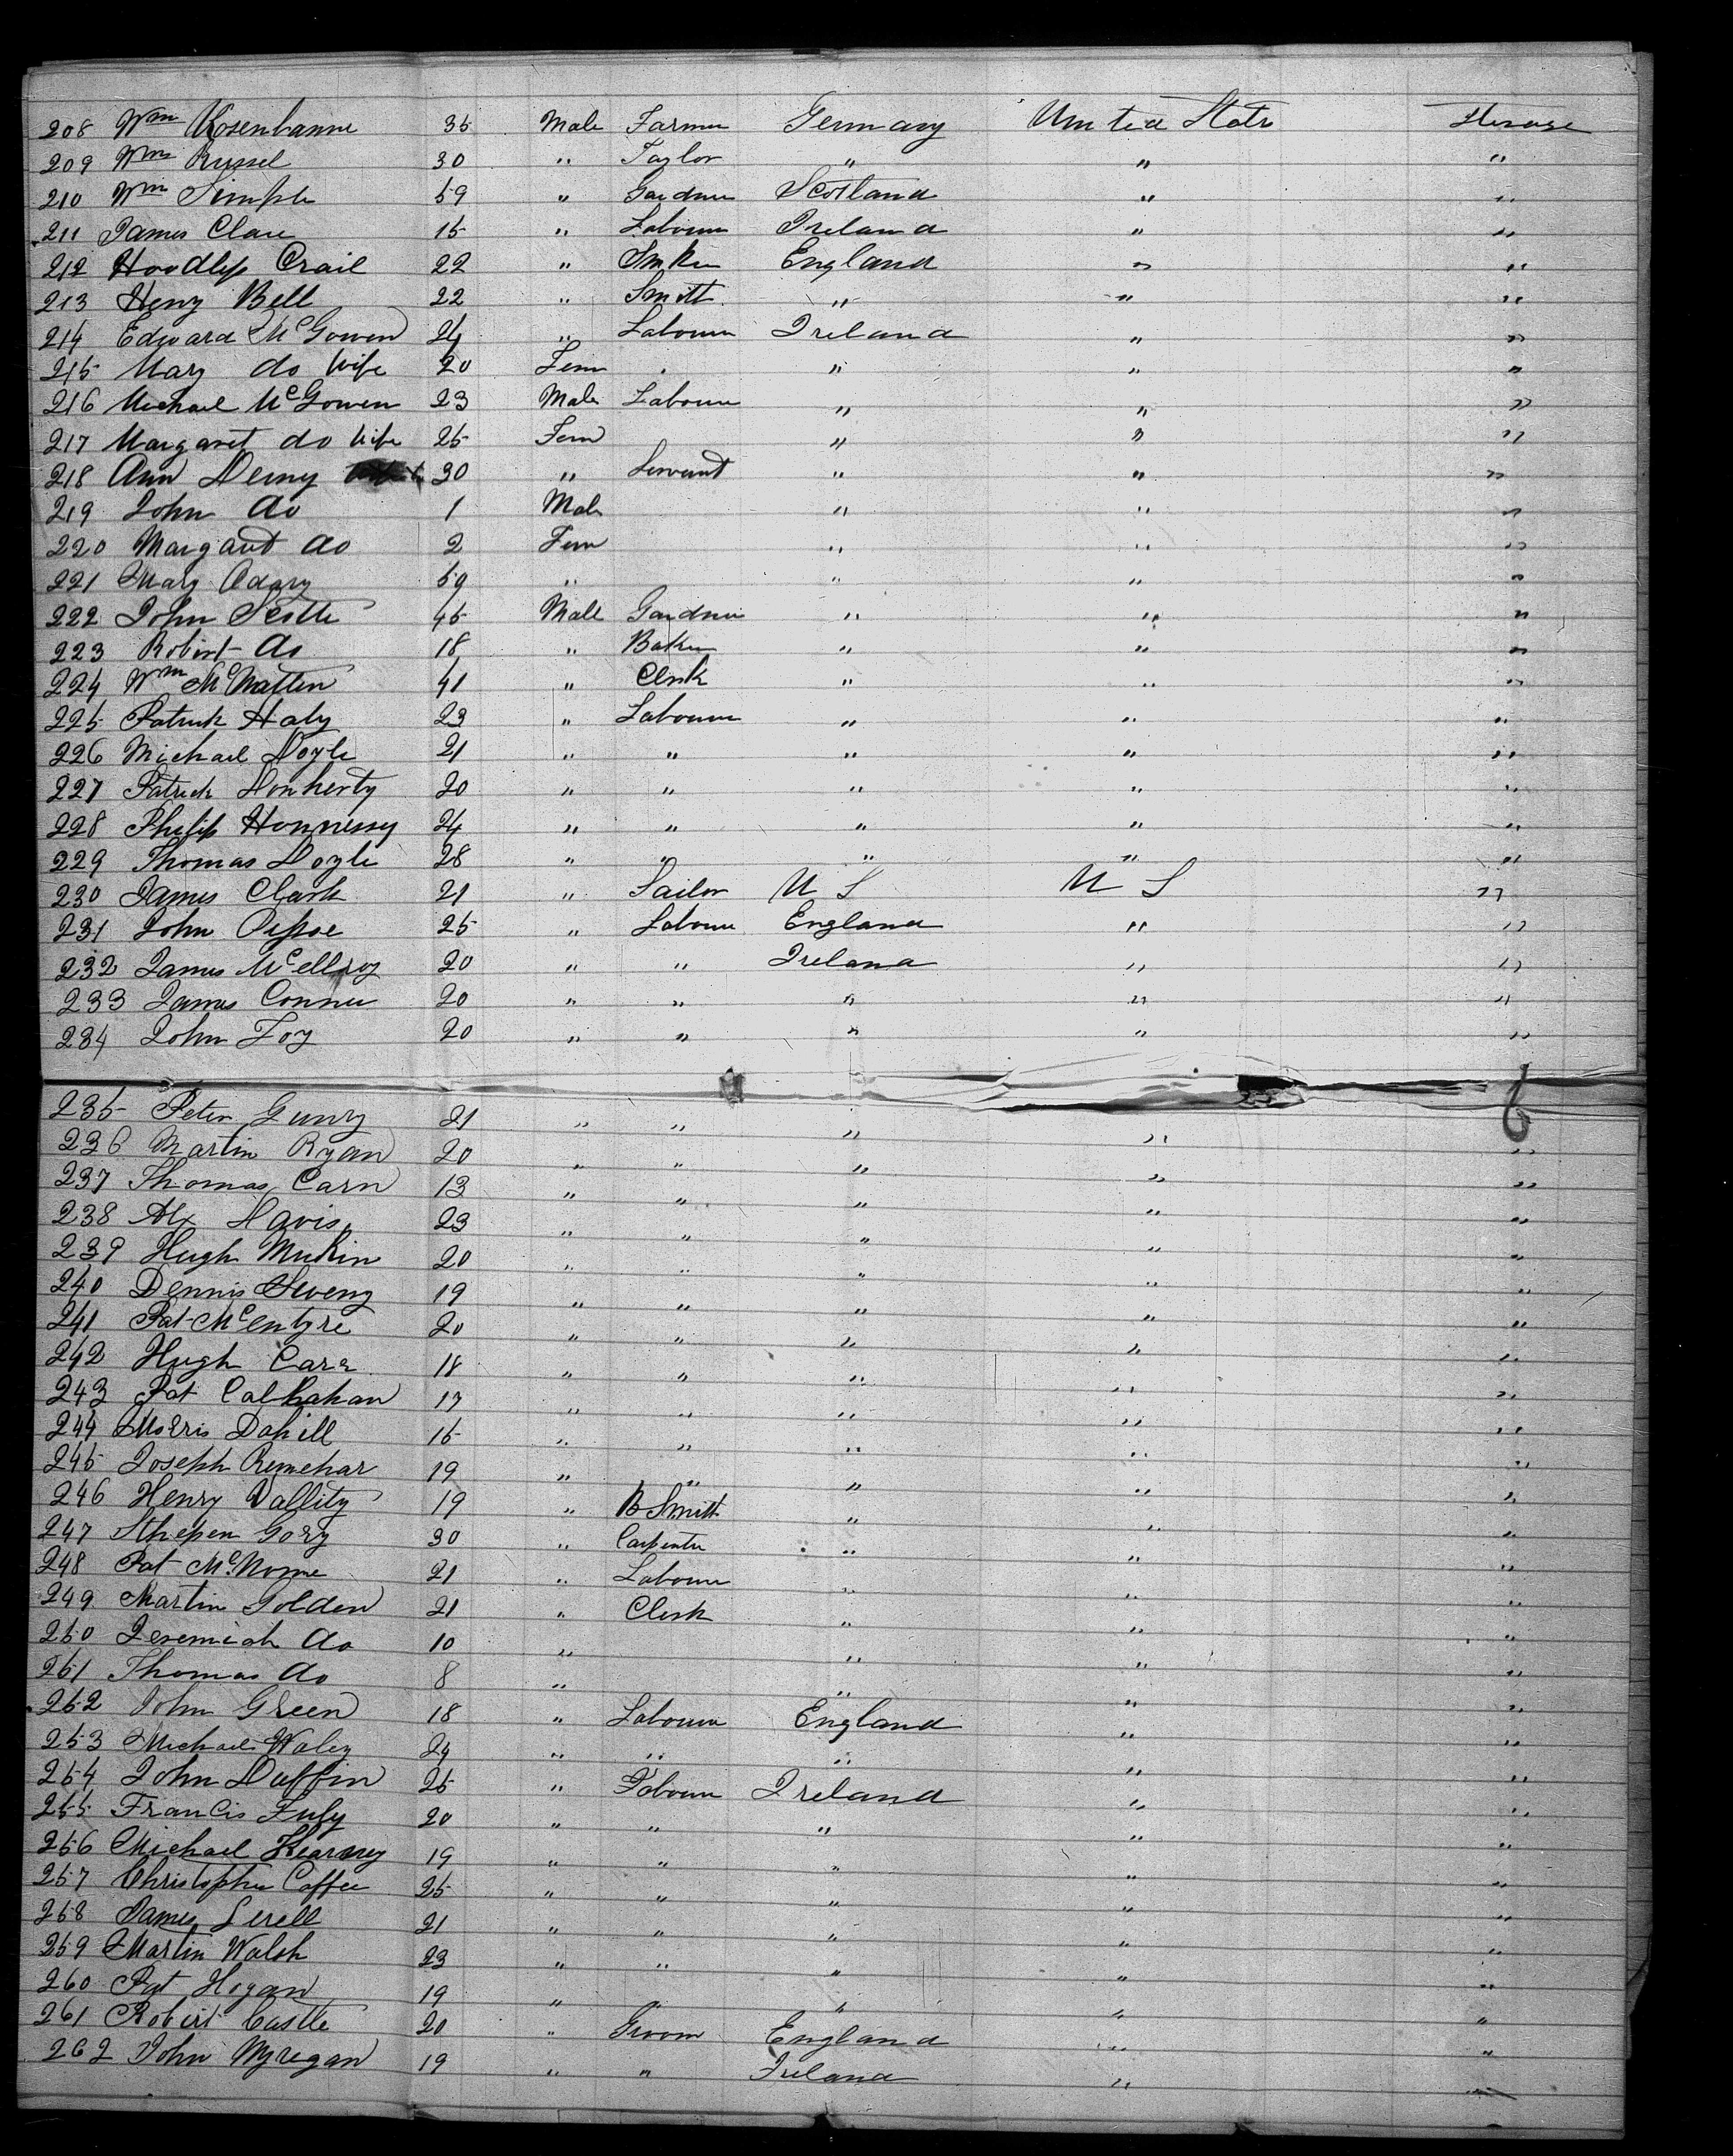 208 Wm Rosenbanme 35 Male Farmer Germany United States Steerage
209 Wm Russel 30 " Taylor " " "
210 Wm Simple 59 " Gardner Scotland " "
211 James Clare 15 " Labourer Ireland " "
212 Hoodlip Crail 22 " England " "
213 Heny Bell 22 " Smith " " "
214 Edward McGowen 24 " Labourer Ireland " "
215 Mary do Wife 20 Fem " " "
216 Michael McGowen 23 Male Labourer " " "
217 Margaret do Wife 25 Fem " " "
218 Ann Deiny 30 " Servant " " "
219 John do 1 Male " " "
220 Margaret do 2 Fem " " "
221 Mary Adary 59 " " " "
222 John Scotte 45 Male Gardner " " "
223 Robert do 18 " Baker " " "
224 Wm McMatten 41 " Clerk " " "
225 Patrick Haly 23 " Labourer " " "
226 Michael Doyle 21 " " " " "
227 Patrick Donherty 20 " " " " "
228 Philip Honnessy 24 " " " " "
229 Thomas Doyle 28 " " " " "
230 James Clark 21 " Sailor U S U S "
231 John 25 " Labourer England " "
232 James McEllroy 20 " " Ireland " "
233 James Conner 20 " " " " "
234 John Foy 20 " " " " "
6
235 Peter Gunry 21 " " " " "
236 Martin Ryan 20 " " " " "
237 Thomas Carn 13 " " " " "
238 Alx Davis 23 " " " " "
239 Hugh Murkin 20 " " " " "
240 Dennis Sweeny 19 " " " " "
241 Pat McEntyre 20 " " " " "
242 Hugh Carr 18 " " " " "
243 Pat Callhahan 17 " " " " "
244 Morris Dahill 15 " " " " "
245 Joseph Remehar 19 " " " " "
246 Henry Dallity 19 " B Smith " " "
247 Sthepen Gory 30 " Carpenter " " "
248 Pat McNome 21 " Labourer " " "
249 Martin Golden 21 " Clerk " " "
250 Jeremiah do 10 " " " "
251 Thomas do 8 " " " "
252 John Green 18 " Labourer England " "
253 Michael Waley 24 " " " " "
254 John Duffin 25 " Labourer Ireland " "
255 Francis Fuly 20 " " " " "
256 Michael Kearney 19 " " " " "
257 Christopher Coffee 25 " " " " "
258 James Lerell 21 " " " " "
259 Martin Walsh 23 " " " " "
260 Pat Hogan 19 " " " " "
261 Robert Castle 20 " Groom England " "
262 John Myregan 19 " " Ireland " "